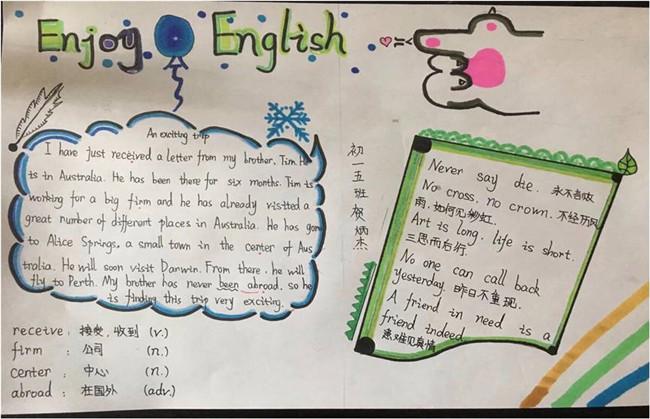 Enjoy English
An exciting trip
I have just received a letter from my brother, Tim. He
is in Australia. He has been there for six months. Tim is
working for a big firm and he has already visited a
great number of different places in Australia. He has gon
to Alice Springs, a small town in the center of Aus
tralia. He will soon visit Darwin. From there, he will
fly to Perth. My brother has never been abroad, so he
is finding this trip very exciting.
receive: 接受,收到 (v.)
firm : 公司 (n.)
center : 中心 (n.)
abroad : 在国外 (adv.)
初一五班 炳杰
Never say die. 永不言败
No cross, no crown. 不经历风
雨,如何见彩虹.
Art is long, life is short.
三思而后行.
No one can call back
yesterday. 昨日不重现.
A friend in need is a
friend indeed.
患难见真情